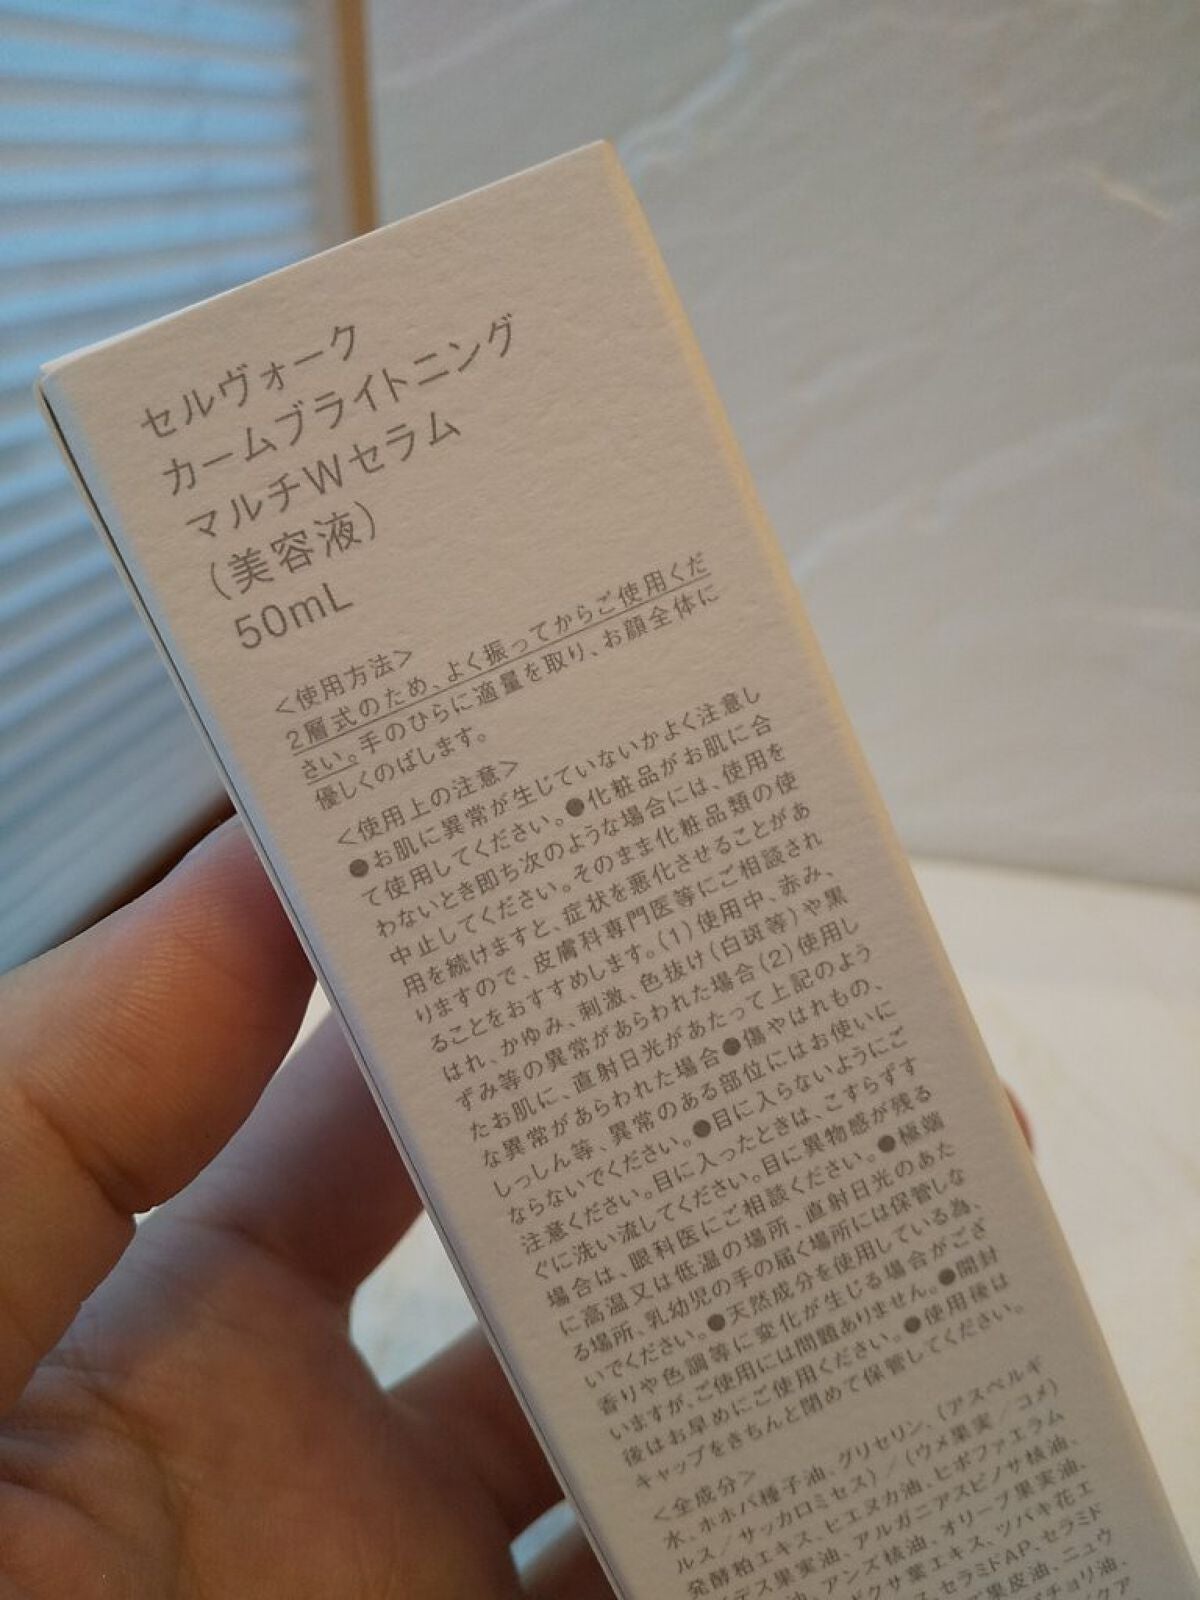 セルヴォーク
カームブライトニング
マルチWセラム
(美容液)
50mL
<使用方法>
2層式のため、よく振ってからご使用くだ
さい。手のひらに適量を取り、お顔全体に
優しくのばします。
<使用上の注意>
●お肌に異常が生じていないかよく注意し
て使用してください。●化粧品がお肌に合
わないとき即ち次のような場合には、使用を
中止してください。そのまま化粧品類の使
用を続けますと、症状を悪化させることがあ
りますので、皮膚科専門医等にご相談され
ることをおすすめします。(1)使用中、赤み、
はれ、かゆみ、刺激、色抜け(白斑等)や黒
ずみ等の異常があらわれた場合(2)使用し
たお肌に、直射日光があたって上記のよう
な異常があらわれた場合●傷やはれもの、
しっしん等、異常のある部位にはお使いに
ならないでください。●目に入らないようにご
注意ください。目に入ったときは、こすらずす
ぐに洗い流してください。目に異物感が残る
場合は、眼科医にご相談ください。●極端
に高温又は低温の場所、直射日光のあた
る場所、乳幼児の手の届く場所には保管しな
いでください。●天然成分を使用している為、
香りや色調等に変化が生じる場合がござ
いますが、ご使用には問題ありません。●開封
後はお早めにご使用ください。●使用後は
キャップをきちんと閉めて保管してください。
<全成分>
水、ホホバ種子油、グリセリン、(アスペルギ
ルス/サッカロミセス)/(ウメ果実/コメ)
発酵粕エキス、ヒエヌカ油、ヒポファエラム
デス果実油、アルガニアスピノサ核油、
油、アンズ核油、オリーブ果実油、
ドクサ葉エキス、ツバキ花エ
ス、セラミドAP、セラミド
果皮油、ニュウ
パチョリ油、